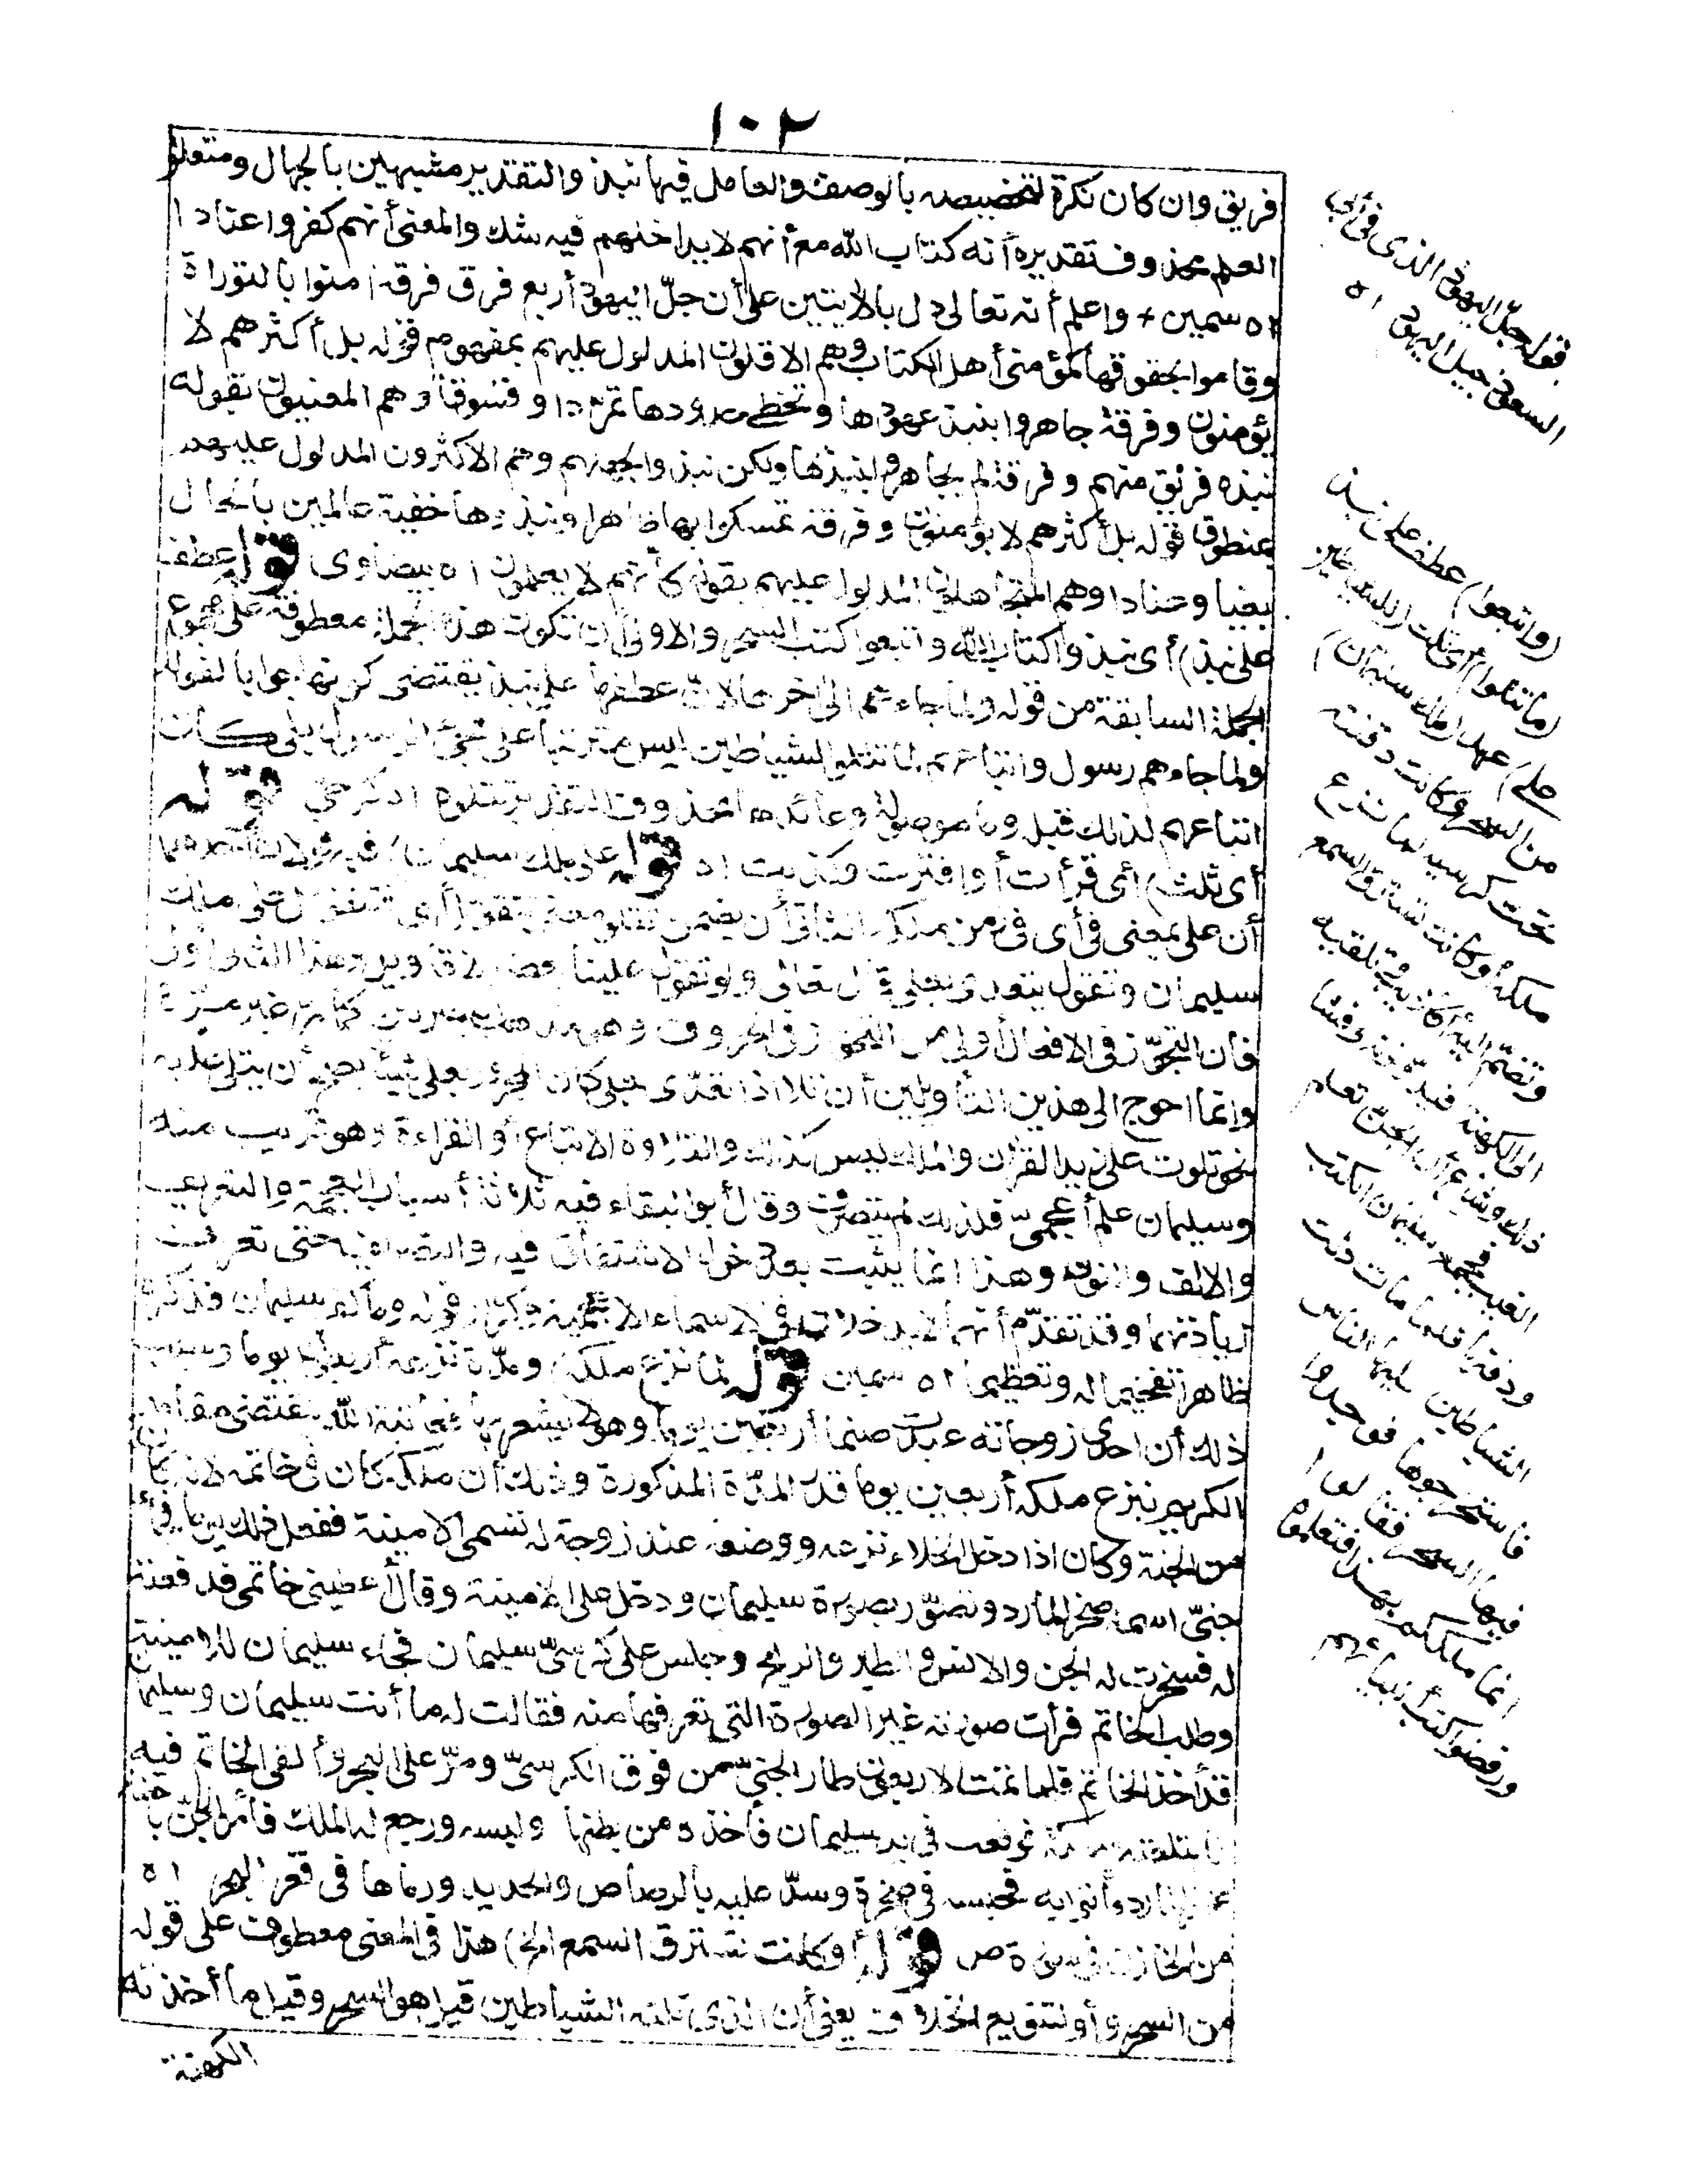 ١٠٢
فريق وان كان نكرة لتخصيصه بالوصف والعامل فيها نبذ والتقدير مشبهين بالجهال ومتعلق
العلم محذوف تقديره أنه كتاب الله مع أنهم لا يداخلهم فيه شك والمعنى أنهم كفروا عنادا
اه سمين + واعلم أنه تعالى دل بالايتين على أن جلّ اليهود أربع فرق فرقة امنوا بالتوراة
وقاموا بحقوقها كمؤمنى أهل الكتاب وهم الاقلون المدلول عليهم بمفهوم قوله بل أكثرهم لا
يؤمنون وفرقة جاهروا بنبذ عهودها وتخطى حدودها تمردا وفسوقا وهم المعنيون بقوله
نبذه فريق منهم وفرقة لم يجاهروا بنبذها ولكن نبذوا لجهلهم وهم الاكثرون المدلول عليهم
بمنطوق قوله بل أكثرهم لا يؤمنون وفرقة تمسكوا بها ظاهرا ونبذوها خفية عالمين بالحال
بغيا وعنادا وهم المتجاهلون المدلول عليهم بقوله كأنهم لا يعلمون اه بيضاوى قوله عطف
على نبذ) أى نبذوا كتاب الله واتبعوا كتب السحر والاولى أن تكون هذه الجملة معطوفة على مجموع
الجملة السابقة من قوله ولما جاءهم الى اخرها لان عطفها على نبذ يقتضى كونها جوابا لقوله
ولما جاءهم رسول واتباعهم لما تتلو الشياطين ليس مترتبا على مجئ الرسول بل كان
اتباعهم لذلك قبل وما موصولة وعائدها محذوف والتقدير تتلوه اه كرخى قوله
أى تلت) أى قرأت أو افترت وكذبت اه قوله على ملك سليمان) فيه قولان أحدهما
أن على بمعنى فى أى فى زمن ملكه والثانى أن يضمن تتلو معنى تتقول أى تتقول على ملك
سليمان وتقول يتعدى بعلى قال تعالى ولو تقول علينا بعض الاقاويل وهذا الثانى أولى
فان التجوّز فى الافعال أولى من التجوز فى الحروف وهو مذهب البصريين كما مر غير مرّة
وانما احوج الى هذين التأويلين أن تلا اذا تعدّى بعلى كان المجرور بعلى شيأ يصح أن يتلى عليه
نحو تلوت على زيد القرآن والملك ليس كذلك والتلاوة الاتباع أو القراءة وهو قريب منه
وسليمان علم أعجمىّ فلذلك لم ينصرف وقال أبو البقاء فيه ثلاثة أسباب العجمة والتعريف
والالف والنون وهذا انما يثبت بعد دخول الاشتقاق فيه والتصريف حتى تعرف
زيادتهما وقد تقدّم أنهما لا يدخلان فى الاسماء الاعجمية وكرّر قوله وما كفر سليمان فذكره
ظاهرا تفخيما له وتعظيما اه سمين قوله لما نزع ملكه) ومدّة نزعه أربعون يوما وسبب
ذلك أن احدى زوجاته عبدت صنما أربعين يوما وهو لا يشعر بها فعاتبه الله
الكريم بنزع ملكه أربعين يوما قدر المدّة المذكورة وذلك أن ملكه كان فى خاتمه لانه كان
من الجنة وكان اذا دخل الخلاء نزعه ووضعه عند زوجة له تسمى الامينة ففعل ذلك يوما
جنىّ اسمه صخر المارد وتصوّر بصورة سليمان ودخل على الامينة وقال أعطينى خاتمى فدفعته
له فسخرت له الجن والانس والطير والريح وجلس على كرسىّ سليمان فجاء سليمان للامينة
وطلب الخاتم فرأت صورته غير الصورة التى تعرفها منه فقالت له ما أنت سليمان وسليمان
قد أخذ الخاتم فلما تمت الاربعون طار الجنىّ من فوق الكرسىّ ومرّ على البحر وألقى الخاتم فيه
فابتلعته سمكة فوقعت فى يد سليمان فأخذه من بطنها ولبسه ورجع له الملك فأمر الجنّ
المارد وأتى به فحبسه فى صخرة وسدّ عليه بالرصاص والحديد ورماها فى قعر البحر اه
من الخازن فى سورة ص قوله أوكانت تسترق السمع الخ) هذا فى المعنى معطوف على قوله
من السحر وأو لتنويع الخلاف يعنى أن الذى تلته الشياطين قيل هو السحر وقيل ما أخذته
الكهنة
قوله جلّ اليهود الذى فى أبى
السعود جيل اليهود اه
(واتبعوا) عطف على نبذ
(ما تتلوا) أى تلت (الشياطين
على) عهد (ملك سليمان)
من السحر وكانت دفنته
تحت كرسيه لما نزع
ملكه أو كانت تسترق السمع
وتضمّ اليه أكاذيب وتلقيه
الى الكهنة فيدوّنونه وفشا
ذلك وشاع أن الجنّ تعلم
الغيب فجمع سليمان الكتب
ودفنها فلما مات دلت
الشياطين عليها الناس
فاستخرجوها فوجدوا
فيها السحر فقالوا
انما ملككم بهذا فتعلموه
ورفضوا كتب أنبيائهم